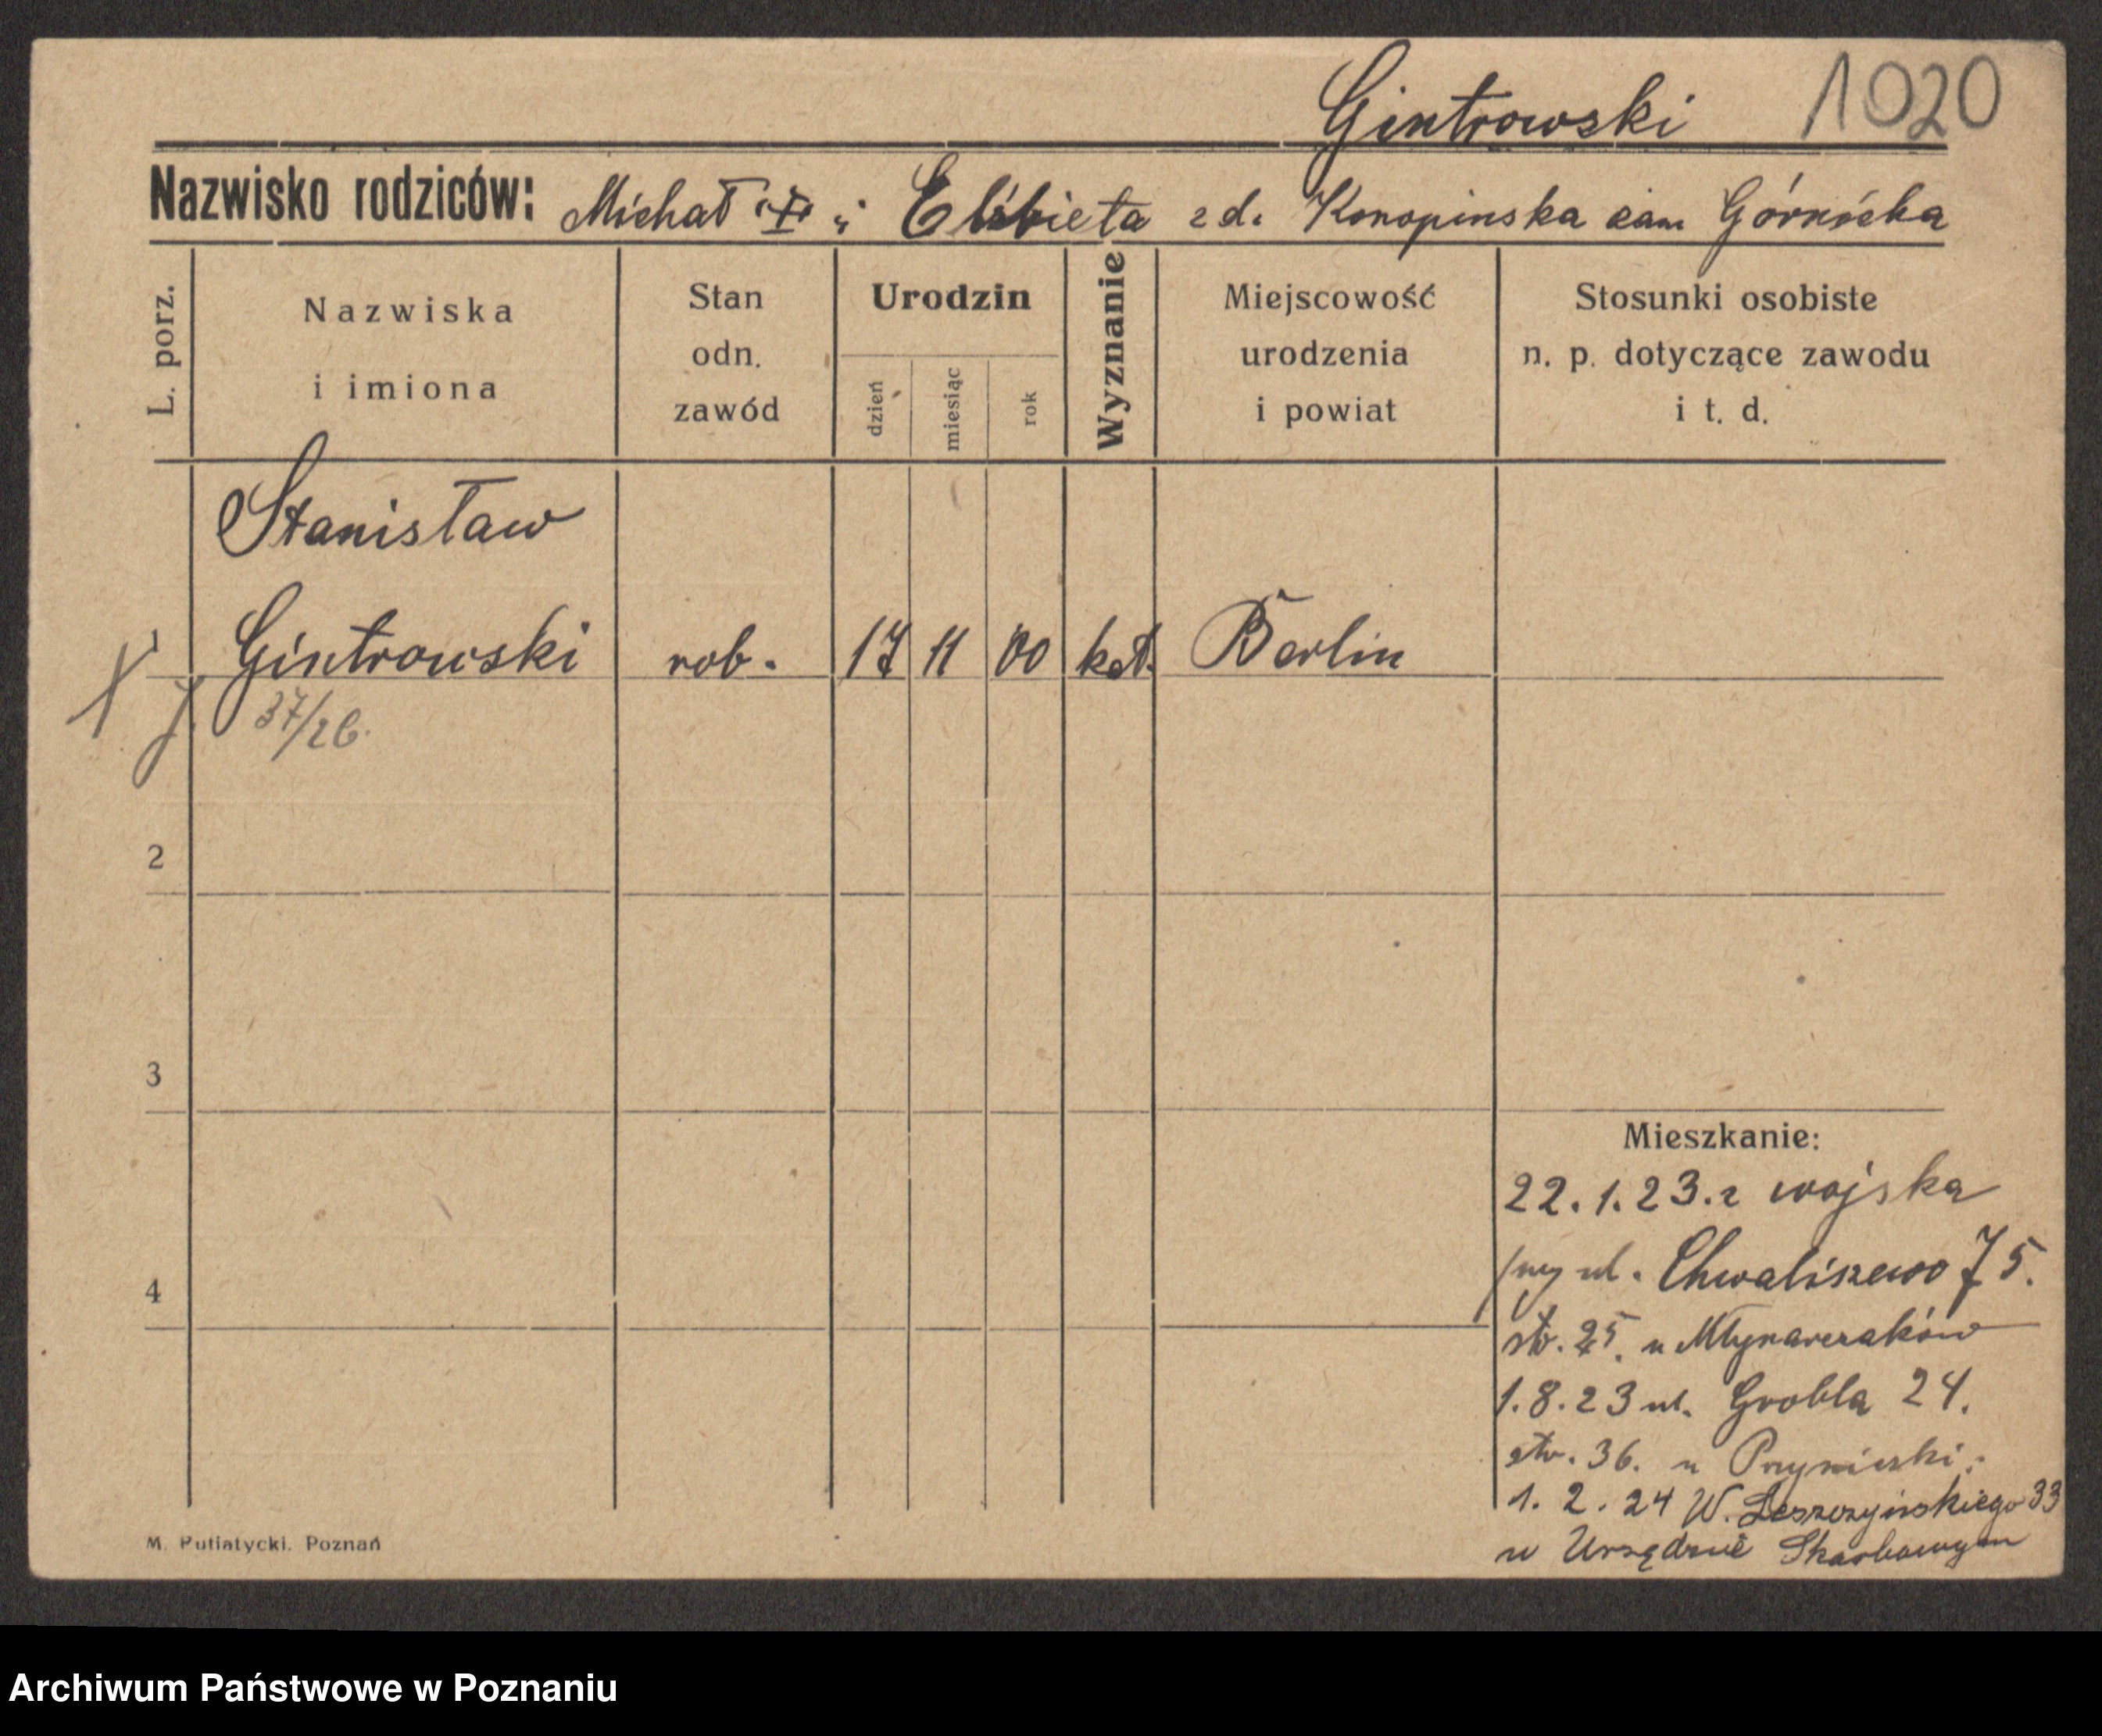 Gintrowski 1020
Nazwisko rodziców: Michał i Elżbieta zd. Konopinska zam Górnicka
L. porz.
Nazwiska i imiona
Stan odn. zawód
Urodzin
dzień
miesiąc
rok
Wyznanie
Miejscowość urodzenia i powiat
Stosunki osobiste n. p. dotyczące zawodu i t. d.
Stanisław
1 Gintrowski rob. 17 11 00 kat. Berlin
37/26.
2
3
4
Mieszkanie:
22.1.23. z wojska
przy ul. Chwaliszewo 75.
str. 25. u Młynarczaków
1.8.23 ul. Grobla 24.
str. 36. u
1. 2. 24 W. Leszczyńskiego 33
w Urzędzie Skarbowym
M. Putiatycki. Poznań
Archiwum Państwowe w Poznaniu